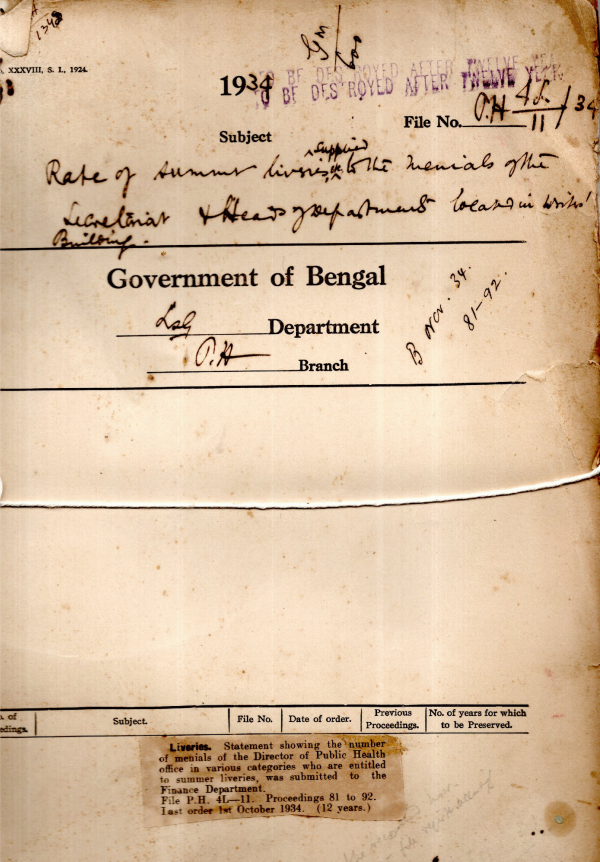 1348
XXXVIII, S. I., 1924.
TO BE DESTROYED AFTER TWELVE YEARS
1934
File No. P.H 4L/11/34
Subject
Rate of summer liveries supplied to the menials of the
Secretariat & Heads of Department located in Writers'
Building.
Government of Bengal
LSG Department
P.H Branch
B Nov. 34.
81-92.
Subject.
File No.
Date of order.
Previous Proceedings.
No. of years for which to be Preserved.
Liveries. Statement showing the number
of menials of the Director of Public Health
office in various categories who are entitled
to summer liveries, was submitted to the
Finance Department.
File P.H. 4L—11. Proceedings 81 to 92.
Last order 1st October 1934. (12 years.)